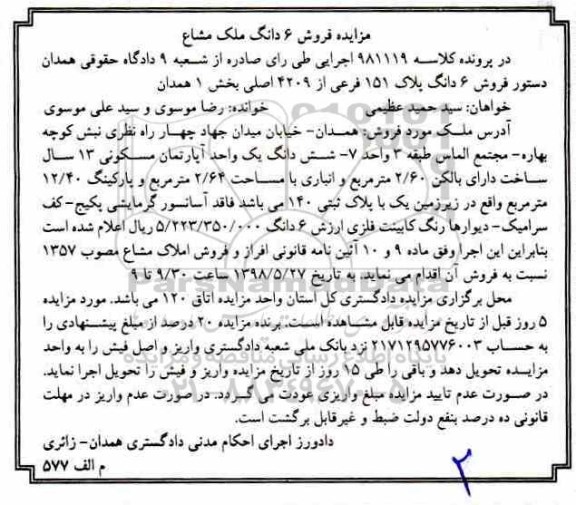 مزایده فروش ۶ دانگ ملک مشاع
در پرونده کلاسه ۹۸۱۱۱۹ اجرایی طی رای صادره از شعبه ۹ دادگاه حقوقی همدان
دستور فروش ۶ دانگ پلاک ۱۵۱ فرعی از ۴۲۰۹ اصلی بخش ۱ همدان
خواهان: سید حمید عظیمی خوانده: رضا موسوی و سید علی موسوی
آدرس ملک مورد فروش: همدان- خیابان میدان جهاد چهار راه نظری نبش کوچه
بهاره- مجتمع الماس طبقه ۳ واحد ۷- شش دانگ یک واحد آپارتمان مسکونی ۱۳ سال
ساخت دارای بالکن ۲/۶۰ مترمربع و انباری با مساحت ۲/۶۴ مترمربع و پارکینگ ۱۲/۴۰
مترمربع واقع در زیرزمین یک با پلاک ثبتی ۱۴۰ می باشد فاقد آسانسور گرمایشی پکیج-کف
سرامیک- دیوارها رنگ کابینت فلزی ارزش ۶ دانگ ۵/۲۲۳/۳۵۰/۰۰۰ ریال اعلام شده است
بنابراین این اجرا وفق ماده ۹ و ۱۰ آئین نامه قانونی افراز و فروش املاک مشاع مصوب ۱۳۵۷
نسبت به فروش آن اقدام می نماید. به تاریخ ۱۳۹۸/۵/۲۷ ساعت ۹/۳۰ تا ۹
محل برگزاری مزایده دادگستری کل استان واحد مزایده اتاق ۱۲۰ می باشد. مورد مزایده
۵ روز قبل از تاریخ مزایده قابل مشاهده است. برنده مزایده ۲۰ درصد از مبلغ پیشنهادی را
به حساب ۲۱۷۱۲۹۵۷۷۶۰۰۳ نزد بانک ملی شعبه دادگستری واریز و اصل فیش را به واحد
مزایده تحویل دهد و باقی را طی ۱۵ روز از تاریخ مزایده واریز و فیش را تحویل اجرا نماید.
در صورت عدم تایید مزایده مبلغ واریزی عودت می گردد. در صورت عدم واریز در مهلت
قانونی ده درصد بنفع دولت ضبط و غیرقابل برگشت است.
دادورز اجرای احکام مدنی دادگستری همدان- زائری
م الف ۵۷۷
۲